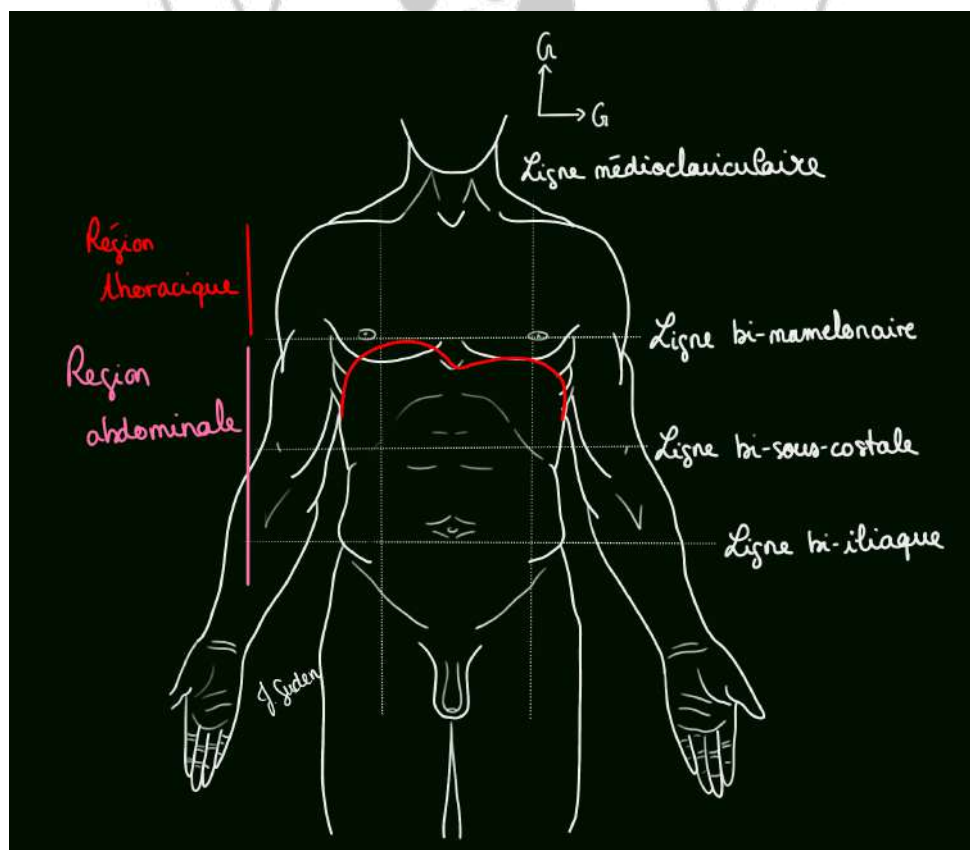 G
G
Ligne médioclaviculaire
Région
thoracique
Ligne bi-mamelonaire
Region
abdominale
Ligne bi-sous-costale
Ligne bi-iliaque